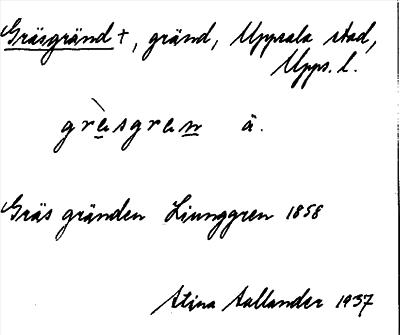 Gräsgränd +, gränd, Uppsala stad,
Upps. l.
grɛ̀sgrɛn ä.
Gräs gränden Ljunggren 1858
Stina Sallander 1937